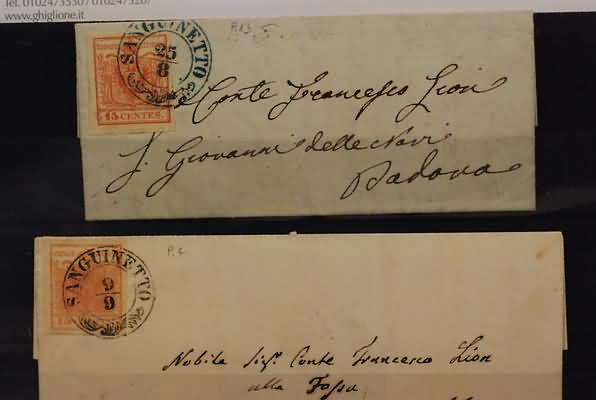 Tel. 0102473530 / 0102473207
www.ghiglione.it
P.13
SANGUINETTO
25
8
15 CENTES.
Conte Francesco Lion
S. Giovanni delle Navi
Padova
P.C.
SANGUINETTO
9
9
15
Nobile Sigr. Conte Francesco Lion
alla Fossa